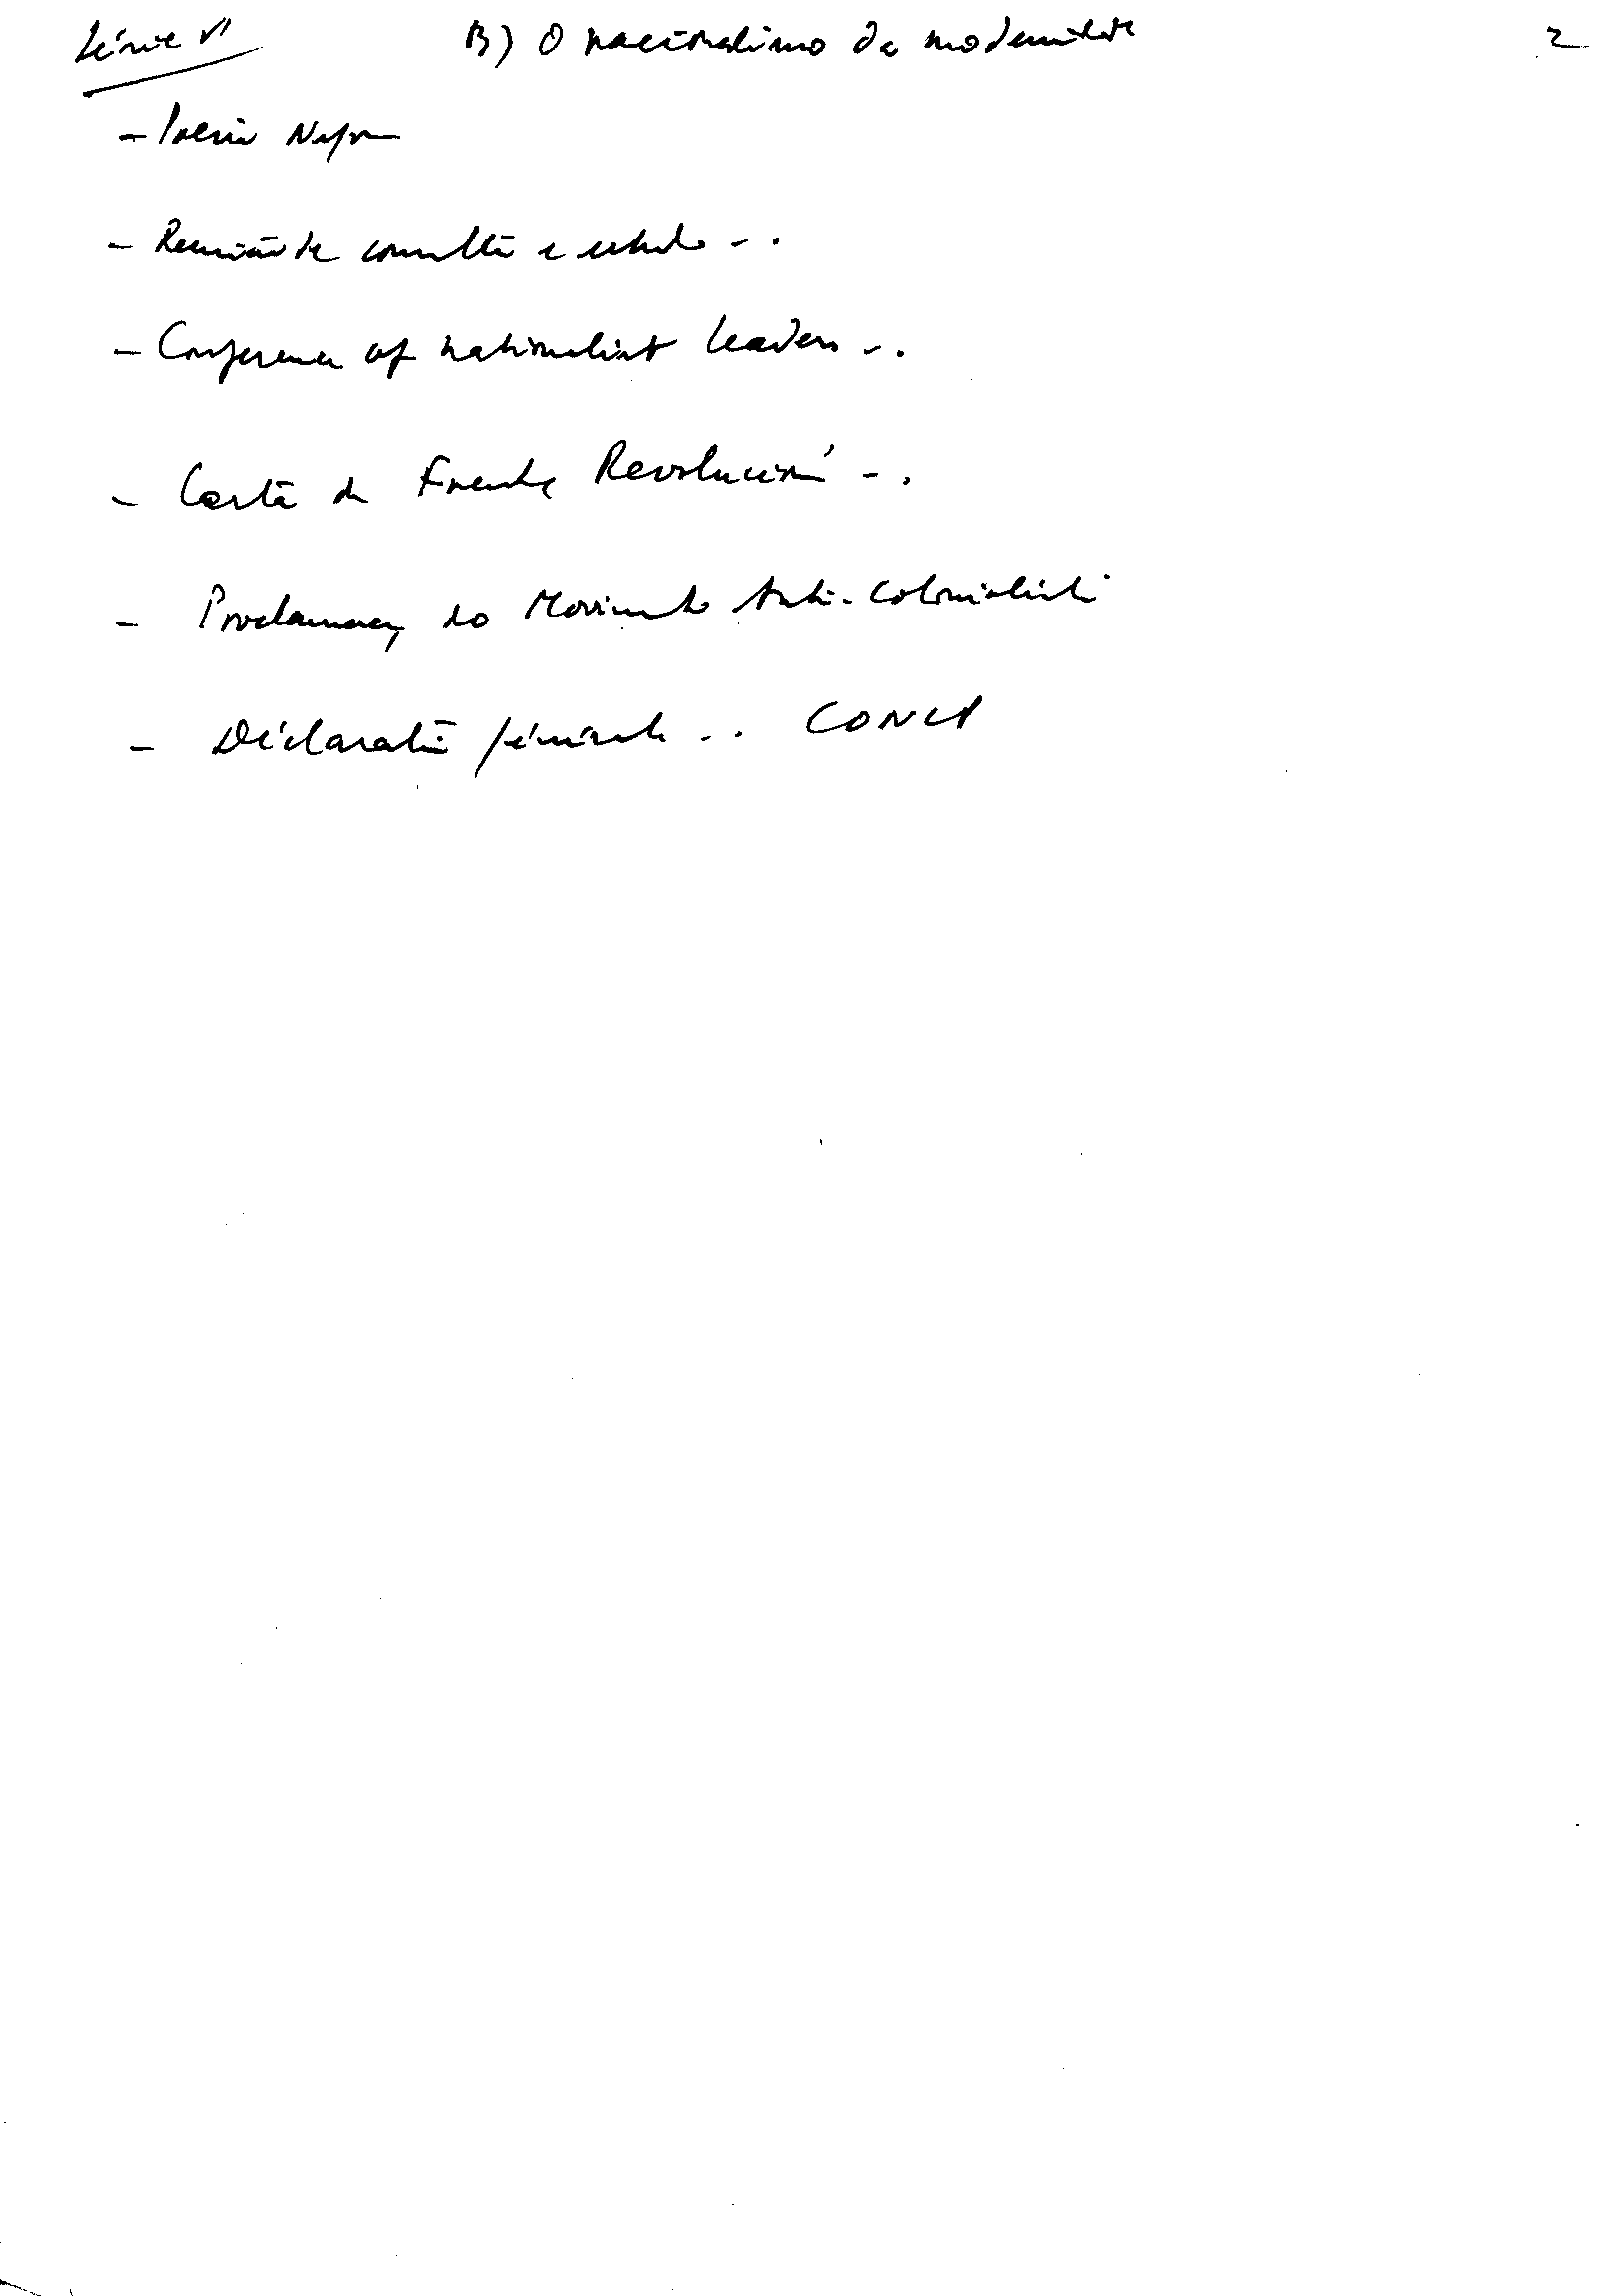 Série VI B) O nacionalismo da modernidade 2
- Poesia Negra
- Reunião de consulta e estudo - .
- Conference of nationalist leaders - .
- Carta da Frente Revolucioná - .
- Proclamação do Movimento Anti-Colonialista
- Déclaration générale - . CONCP